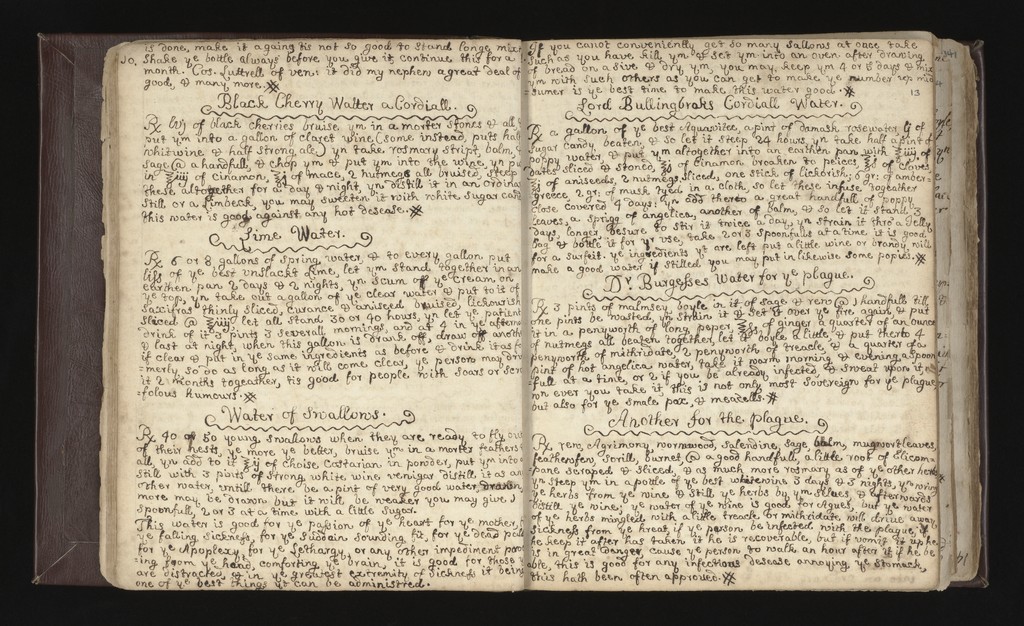 is done, make it againg tis not so good to stand longe, mixt
Shake ye bottle always before you give it, continue this for a
month. Cos. Luttrell of ven: it did my nephew a great deal of
good, & many more.
Black Cherry Watter a Cordiall.
Rx lvj of black cherries bruise ym in a morter stones & all &
put ym into a gallon of claret wine (some instead, puts half
whit wine & half strong ale) yn take rosmary stript, balm,
sage @ a handfull, & chop ym & put ym into the wine, yn pu
in ℥iiij of cinamon, ℥j of mace, 2 nutmegs all bruised, steep
these altogether for a day & night, yn distill it in an ordinar
still or a limbeck, you may sweeten it with white sugar cand
this water is good against any hot desease.
Lime Water.
Rx 6 or 8 gallons of spring water, & to every gallon put
li of ye best unslackt lime, let ym stand together in an
earthen pan 2 days & 2 nights, yn scum off ye cream on
ye top, yn take out a gallon of ye clear water & put to it of
saxifras thinly sliced, curance & aniseed bruised, lickourish
sliced @ ℥iiij let all stand 30 or 40 hours, yn let ye patient
drink of it 3 severall mornings, and at 4 in ye afterno
& last at night, when this gallon is drank off, draw off another
if clear & put in ye same ingredients as before & drink it as fo
merly so do as long as it will come clear, ye person may drin
it 2 months togeather, tis good for people with soars or scro
folous humours.
Water of Swallows.
Rx 40 or 50 young swallows when they are ready to fly ou
of their nests, ye more ye better, bruise ym in a morter feathers &
all, yn add to it ℥ij of choise Castarian in ponder, put ym into a
still with 3 pints of strong white wine venigar distill it as an
other water, untill there be a pint of very good water drawn,
more may be drawn but it will be weaker you may give 1
spoonfull, 2 or 3 at a time with a little suger.
This water is good for ye passion of ye heart for ye mother, f
ye faling sickness, for ye suddain sounding fit, for ye dead pals
for ye Apoplexy, for ye Lethargy, or any other impediment proc
ing from ye head, comforting ye brain, it is good for those y
are distracted, & in ye greatest extremity of sickness it being
one of ye best things yt can be administred.
If you canot conveniently get so many sallows at once take
such as you have kill ym & set ym into an oven after drawing
of bread on a sive & dry ym, you may keep ym 4 or 5 days & mix
ym with such others as you can get to make ye number up, mid
sumer is ye best time to make this water good.
13
Lord Bullingbroks Cordiall Water.
Rx a gallon of ye best Aquavitæ, a pint of damask rosewater, lj of
sugar candy, beaten, & so let it steep 24 hours yn take half a pint of
poppy water & put ym altogether into an earthen pan with ℥iiij of
dates sliced & stoned, ℥j of cinamon broaken to peices, ℥s of cloves
℥j of aniseeds, 2 nutmegs sliced, one stick of lickorish, 6 gr: of amber-
greece, 2 gr: of musk tyed in a cloth, so let these infuse togeather
close covered 4 days: yn add thereto a great handfull of poppy
leaves, a sprig of angelica, another of balm, & so let it stand 3
days, longer besure to stir it twice a day, yn strain it thro' a jelly
bag & bottle it for yr use, take 2 or 3 spoonfulls at a time it is good
for a surfeit. ye ingredients yt are left put a little wine or brandy, will
make a good water if stilled you may put in likewise some popies.
Dr. Burgesses Water for ye plague.
Rx 3 pints of malmsey boyle in it of sage & rew @ 1 handfull till
one pints be wasted, yn strain it & set it over ye fire again, & put
to it a penyworth of long peper, ℥s of ginger a quarter of an ounce
of nutmegs all beaten together, let it boyle a little & put therto a
penyworth of mithridate 2 penyworth of treacle, & a quarter of a
pint of hot angelica water, take it warm morning & evening, a spoon
full at a time, or 2 if you be already infected, & sweat upon it,
wn ever you take it, this is not only most Sovereign for ye plague
but also for ye small pox, & meacells.
Another for the plague.
Rx rew, Agrimony wormwood, salendine, sage balm, mugwort leaves,
featherofew sorill, burnet @ a good handfull, a little root of Elicom-
pane scraped & sliced, & as much more rosmary as of ye other herbs
yn steep ym in a pottle of ye best whitewine 3 days & 3 nights, yn wring
ye herbs from ye wine & still ye herbs by ym selves, & afterwards
distill ye wine; ye water of ye wine is good for Agues, but ye water
of ye herbs mingled with a little treacle or mithridate will drive away
sickness from ye heart, if ye person be infected with the plague, if
he keep it after has taken it he is recoverable, but if vomit it up he
is in great danger, cause ye person to walk an hour after it if he be
able, this is good for any infectious desease annoying ye stomack,
this hath been often approued.
14